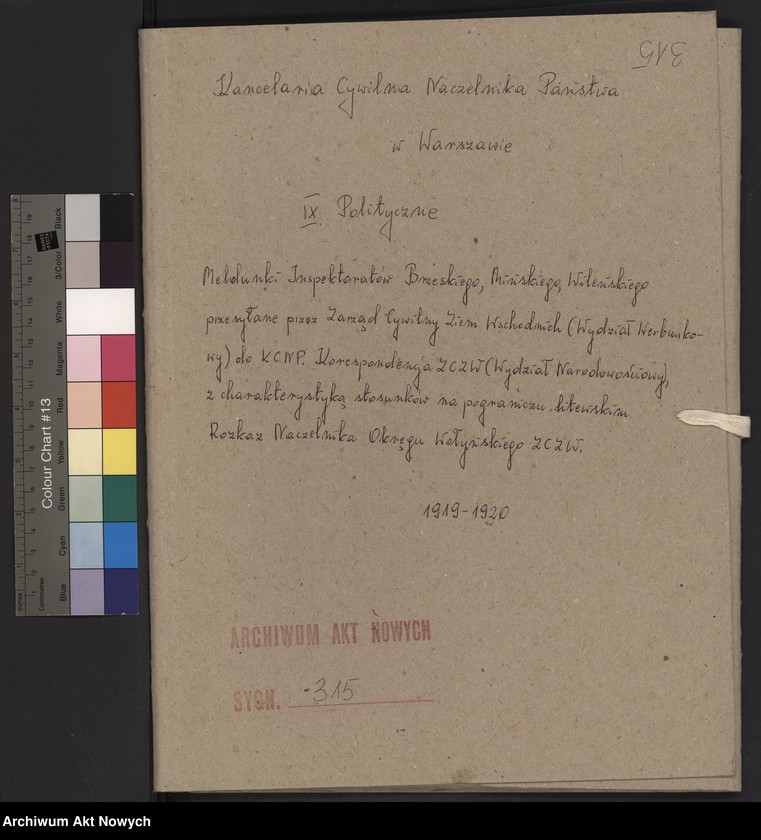 315
Kancelaria Cywilna Naczelnika Państwa
w Warszawie
IX. Polityczne
Meldunki Inspektoratów Brzeskiego, Mińskiego, Wileńskiego
przesyłane przez Zarząd Cywilny Ziem Wschodnich (Wydział Werbunko-
wy) do KCNP. Korespondencja ZCZW (Wydział Narodowościowy),
z charakterystyką stosunków na pograniczu litewskim.
Rozkaz Naczelnika Okręgu Wołyńskiego ZCZW.
1919-1920
ARCHIWUM AKT NOWYCH
SYGN. 315
Colour Chart #13
Blue
Cyan
Green
Yellow
Red
Magenta
White
3/Color
Black
Inches
Centimetres
Archiwum Akt Nowych